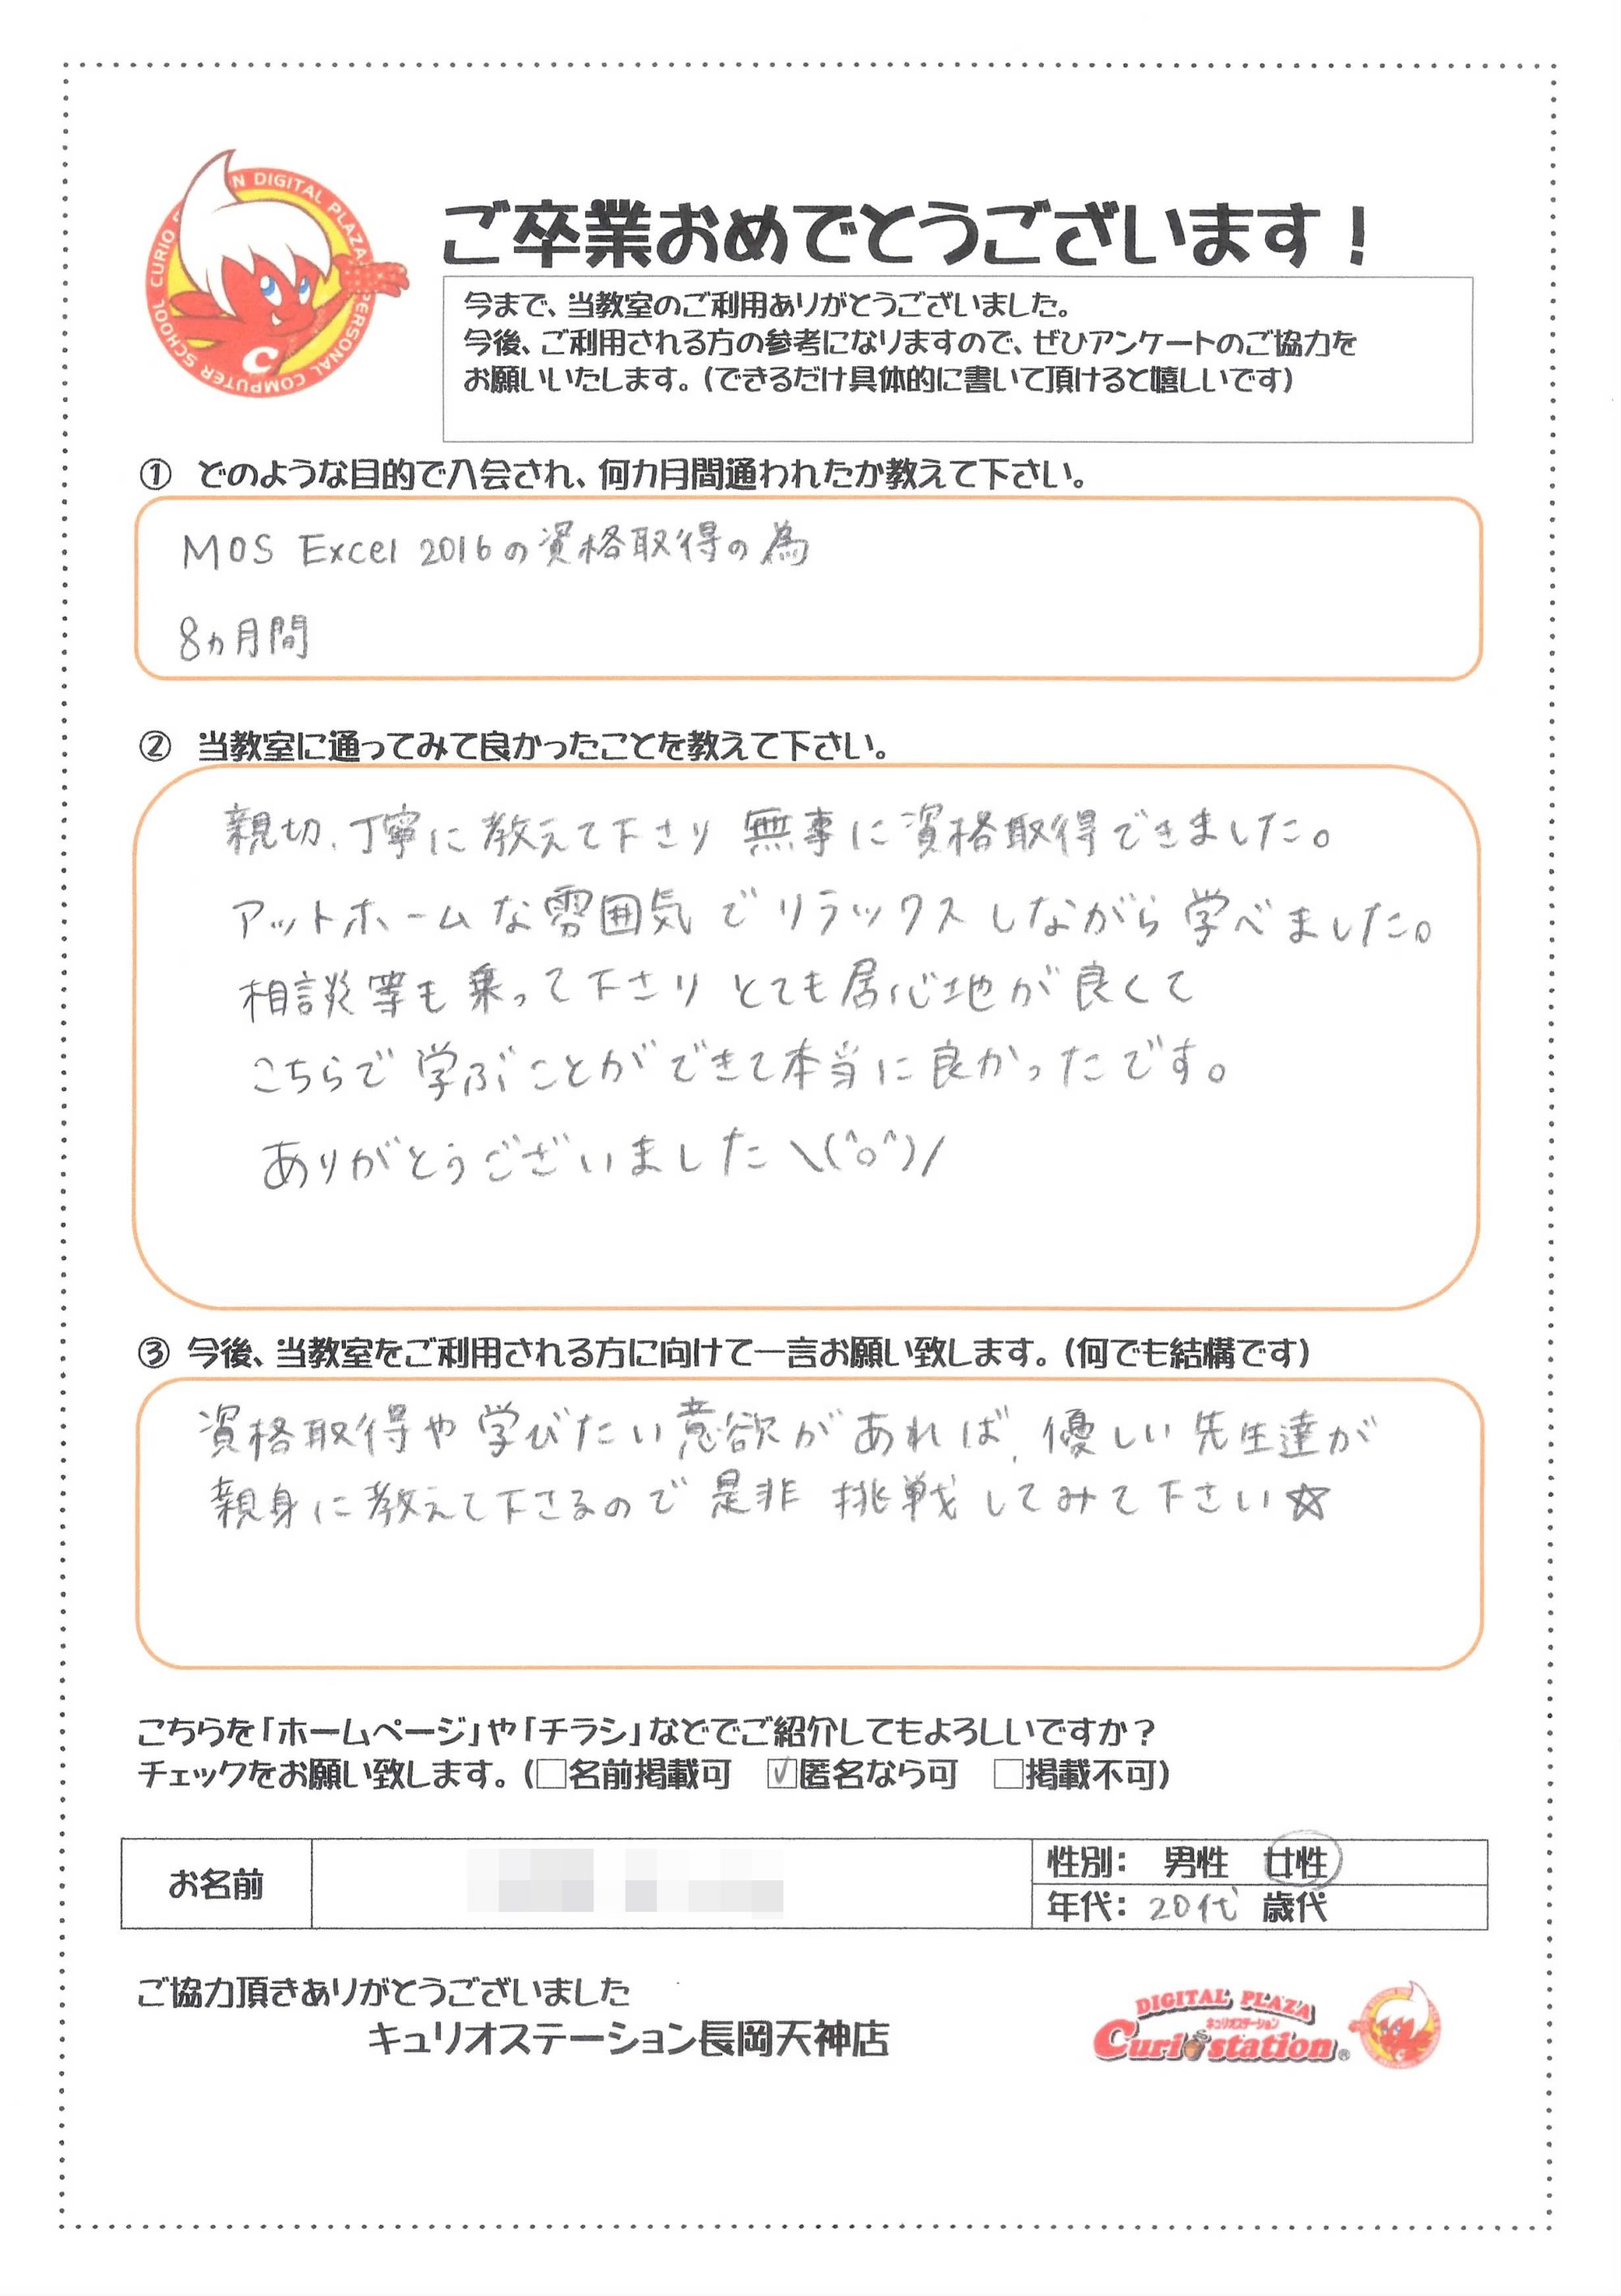 CURIO N DIGITAL PLAZA PERSONAL COMPUTER SCHOOL
C
ご卒業おめでとうございます！
今まで、当教室のご利用ありがとうございました。
今後、ご利用される方の参考になりますので、ぜひアンケートのご協力を
お願いいたします。（できるだけ具体的に書いて頂けると嬉しいです）
① どのような目的で入会され、何カ月間通われたか教えて下さい。
MOS Excel 2016の資格取得の為
8ヵ月間
② 当教室に通ってみて良かったことを教えて下さい。
親切、丁寧に教えて下さり 無事に資格取得できました。
アットホームな雰囲気でリラックスしながら学べました。
相談等も乗って下さり とても居心地が良くて
こちらで学ぶことができて本当に良かったです。
ありがとうございました \(^o^)/
③ 今後、当教室をご利用される方に向けて一言お願い致します。（何でも結構です）
資格取得や学びたい意欲があれば、優しい先生達が
親身に教えて下さるので是非 挑戦してみて下さい☆
こちらを「ホームページ」や「チラシ」などでご紹介してもよろしいですか？
チェックをお願い致します。（□名前掲載可 ☑匿名なら可 □掲載不可）
お名前
性別： 男性 女性
年代： 20代 歳代
ご協力頂きありがとうございました
キュリオステーション長岡天神店
DIGITAL PLAZA
キュリオステーション
Curio station®